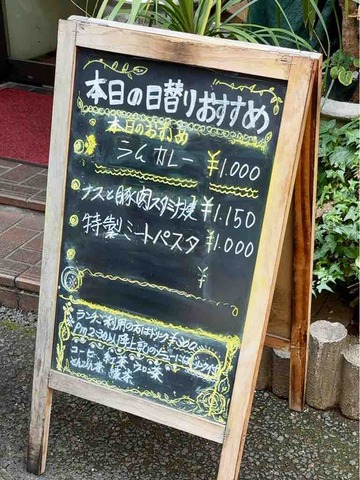 本日の日替りおすすめ
本日のおすすめ
ラムカレー ¥1.000
ナスと豚肉スタミナ焼 ¥1.150
特製ミートパスタ ¥1.000
¥
ランチご利用の方はドリンク¥200
PM2:30以降上記のメニューにはドリンク付
コーヒー 紅茶 ウーロン茶